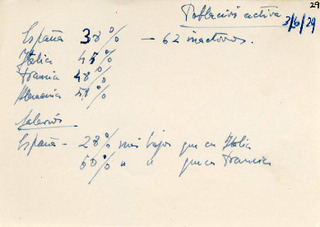 29
Población activa
3/6/29
España 38% — 62 inactivos.
Italia 45%
Francia 48%
Alemania 50%
Salarios
España - 28% más bajos que en Italia
50% " " que en Francia